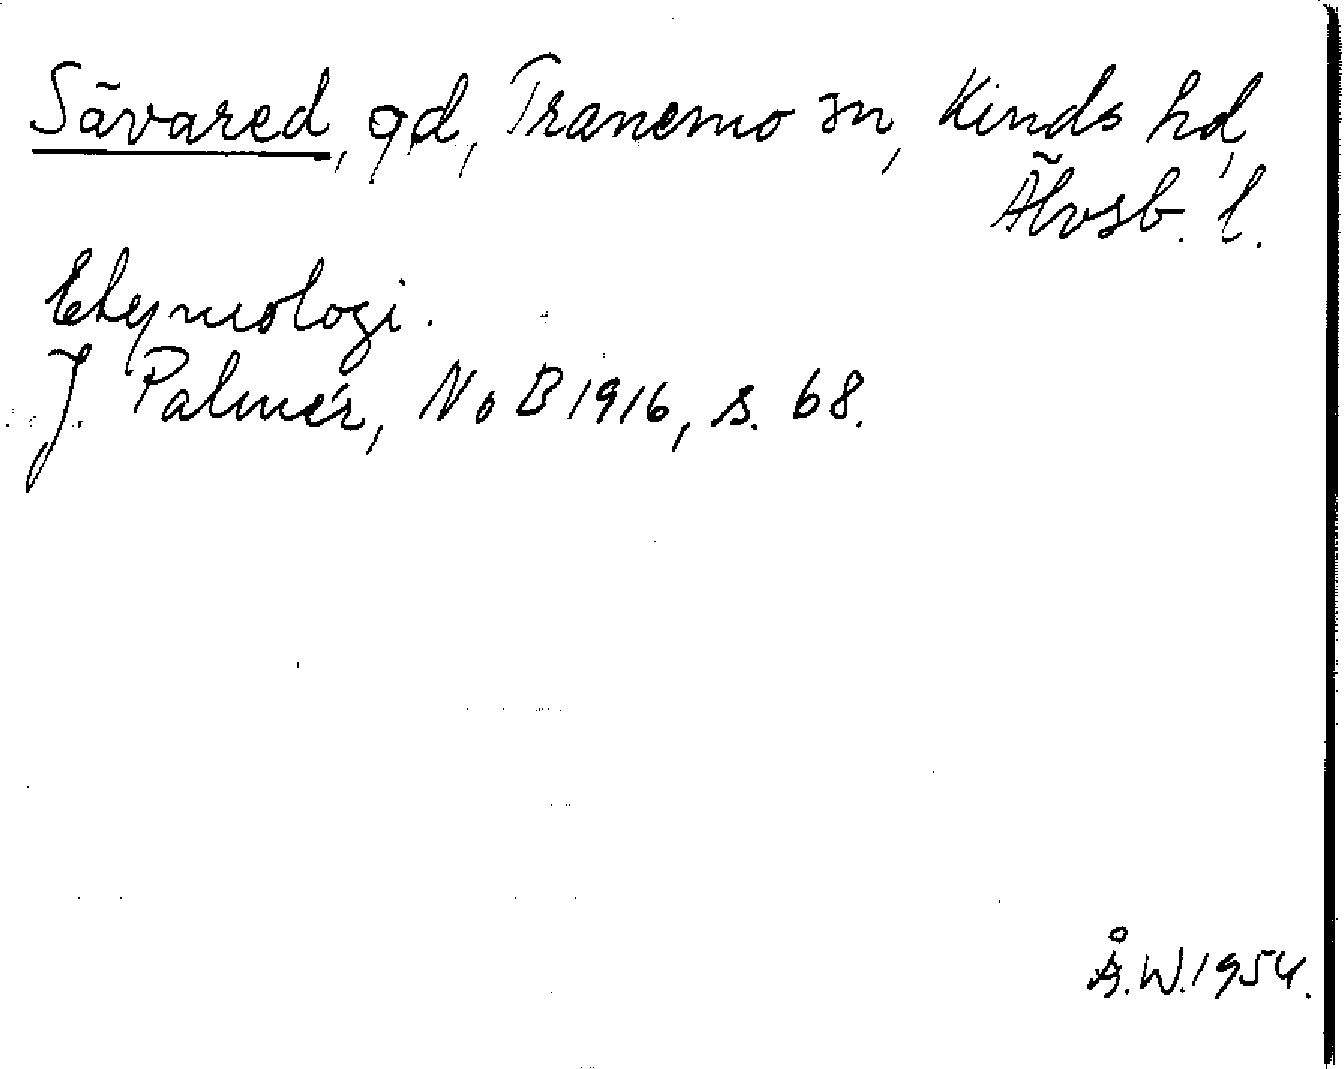 Sävared, gd, Tranemo sn, Kinds hd,
Älvsb. l.
Etymologi.
J. Palmér, NoB 1916, s. 68.
Å.W. 1954.